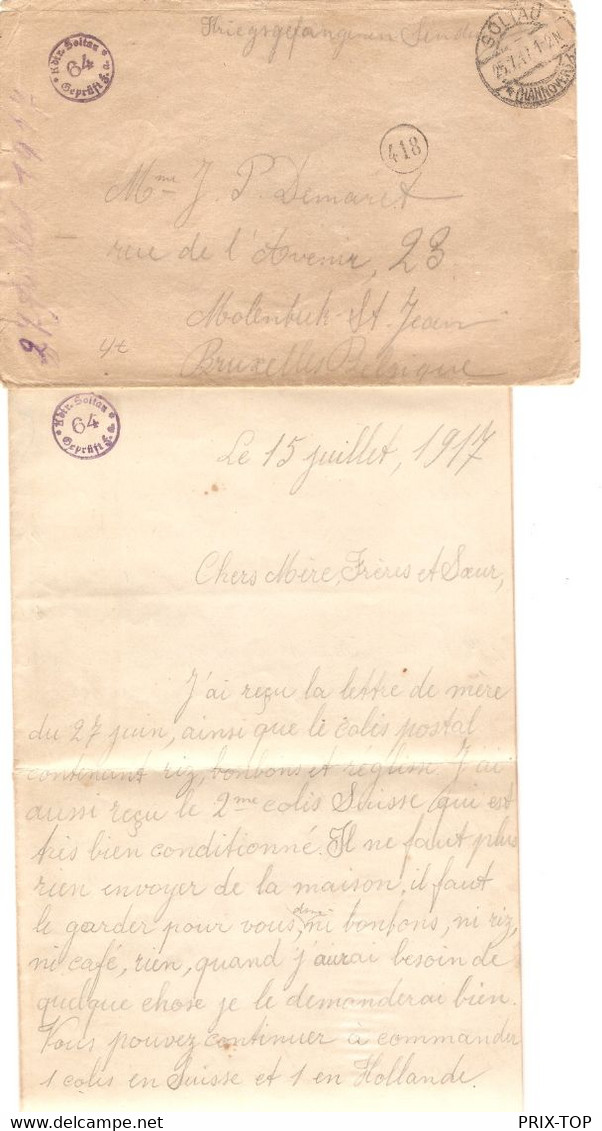 Kdtr. Soltau
64
Geprüft F. a.
Kriegsgefangenen Sendu
SOLTAU
25.7.17.1-2N
(HANNOVER)
418
Mme J. P. Demaret
rue de l'Avenir, 23
Molenbeek-St. Jean
Bruxelles Belgique
27 1917
Kdtr. Soltau
64
Geprüft F. a.
Le 15 juillet, 1917
Chers Mère, Frères et Sœur,
J'ai reçu la lettre de mère
du 27 juin, ainsi que le colis postal
contenant riz, bonbons et réglisse. J'ai
aussi reçu le 2me colis Suisse, qui est
très bien conditionné. Il ne faut plus
rien envoyer de la maison, il faut
le garder pour vous, ni bonbons, ni riz,
ni café, rien, quand j'aurai besoin de
quelque chose je le demanderai bien.
Vous pouvez continuer à commander
1 colis en Suisse et 1 en Hollande.
PRIX-TOP